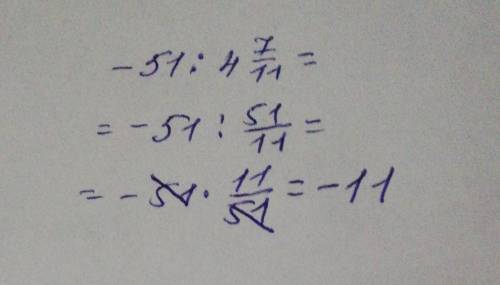 -51 : 4 7/11 =
= -51 : 51/11 =
= -51 · 11/51 = -11